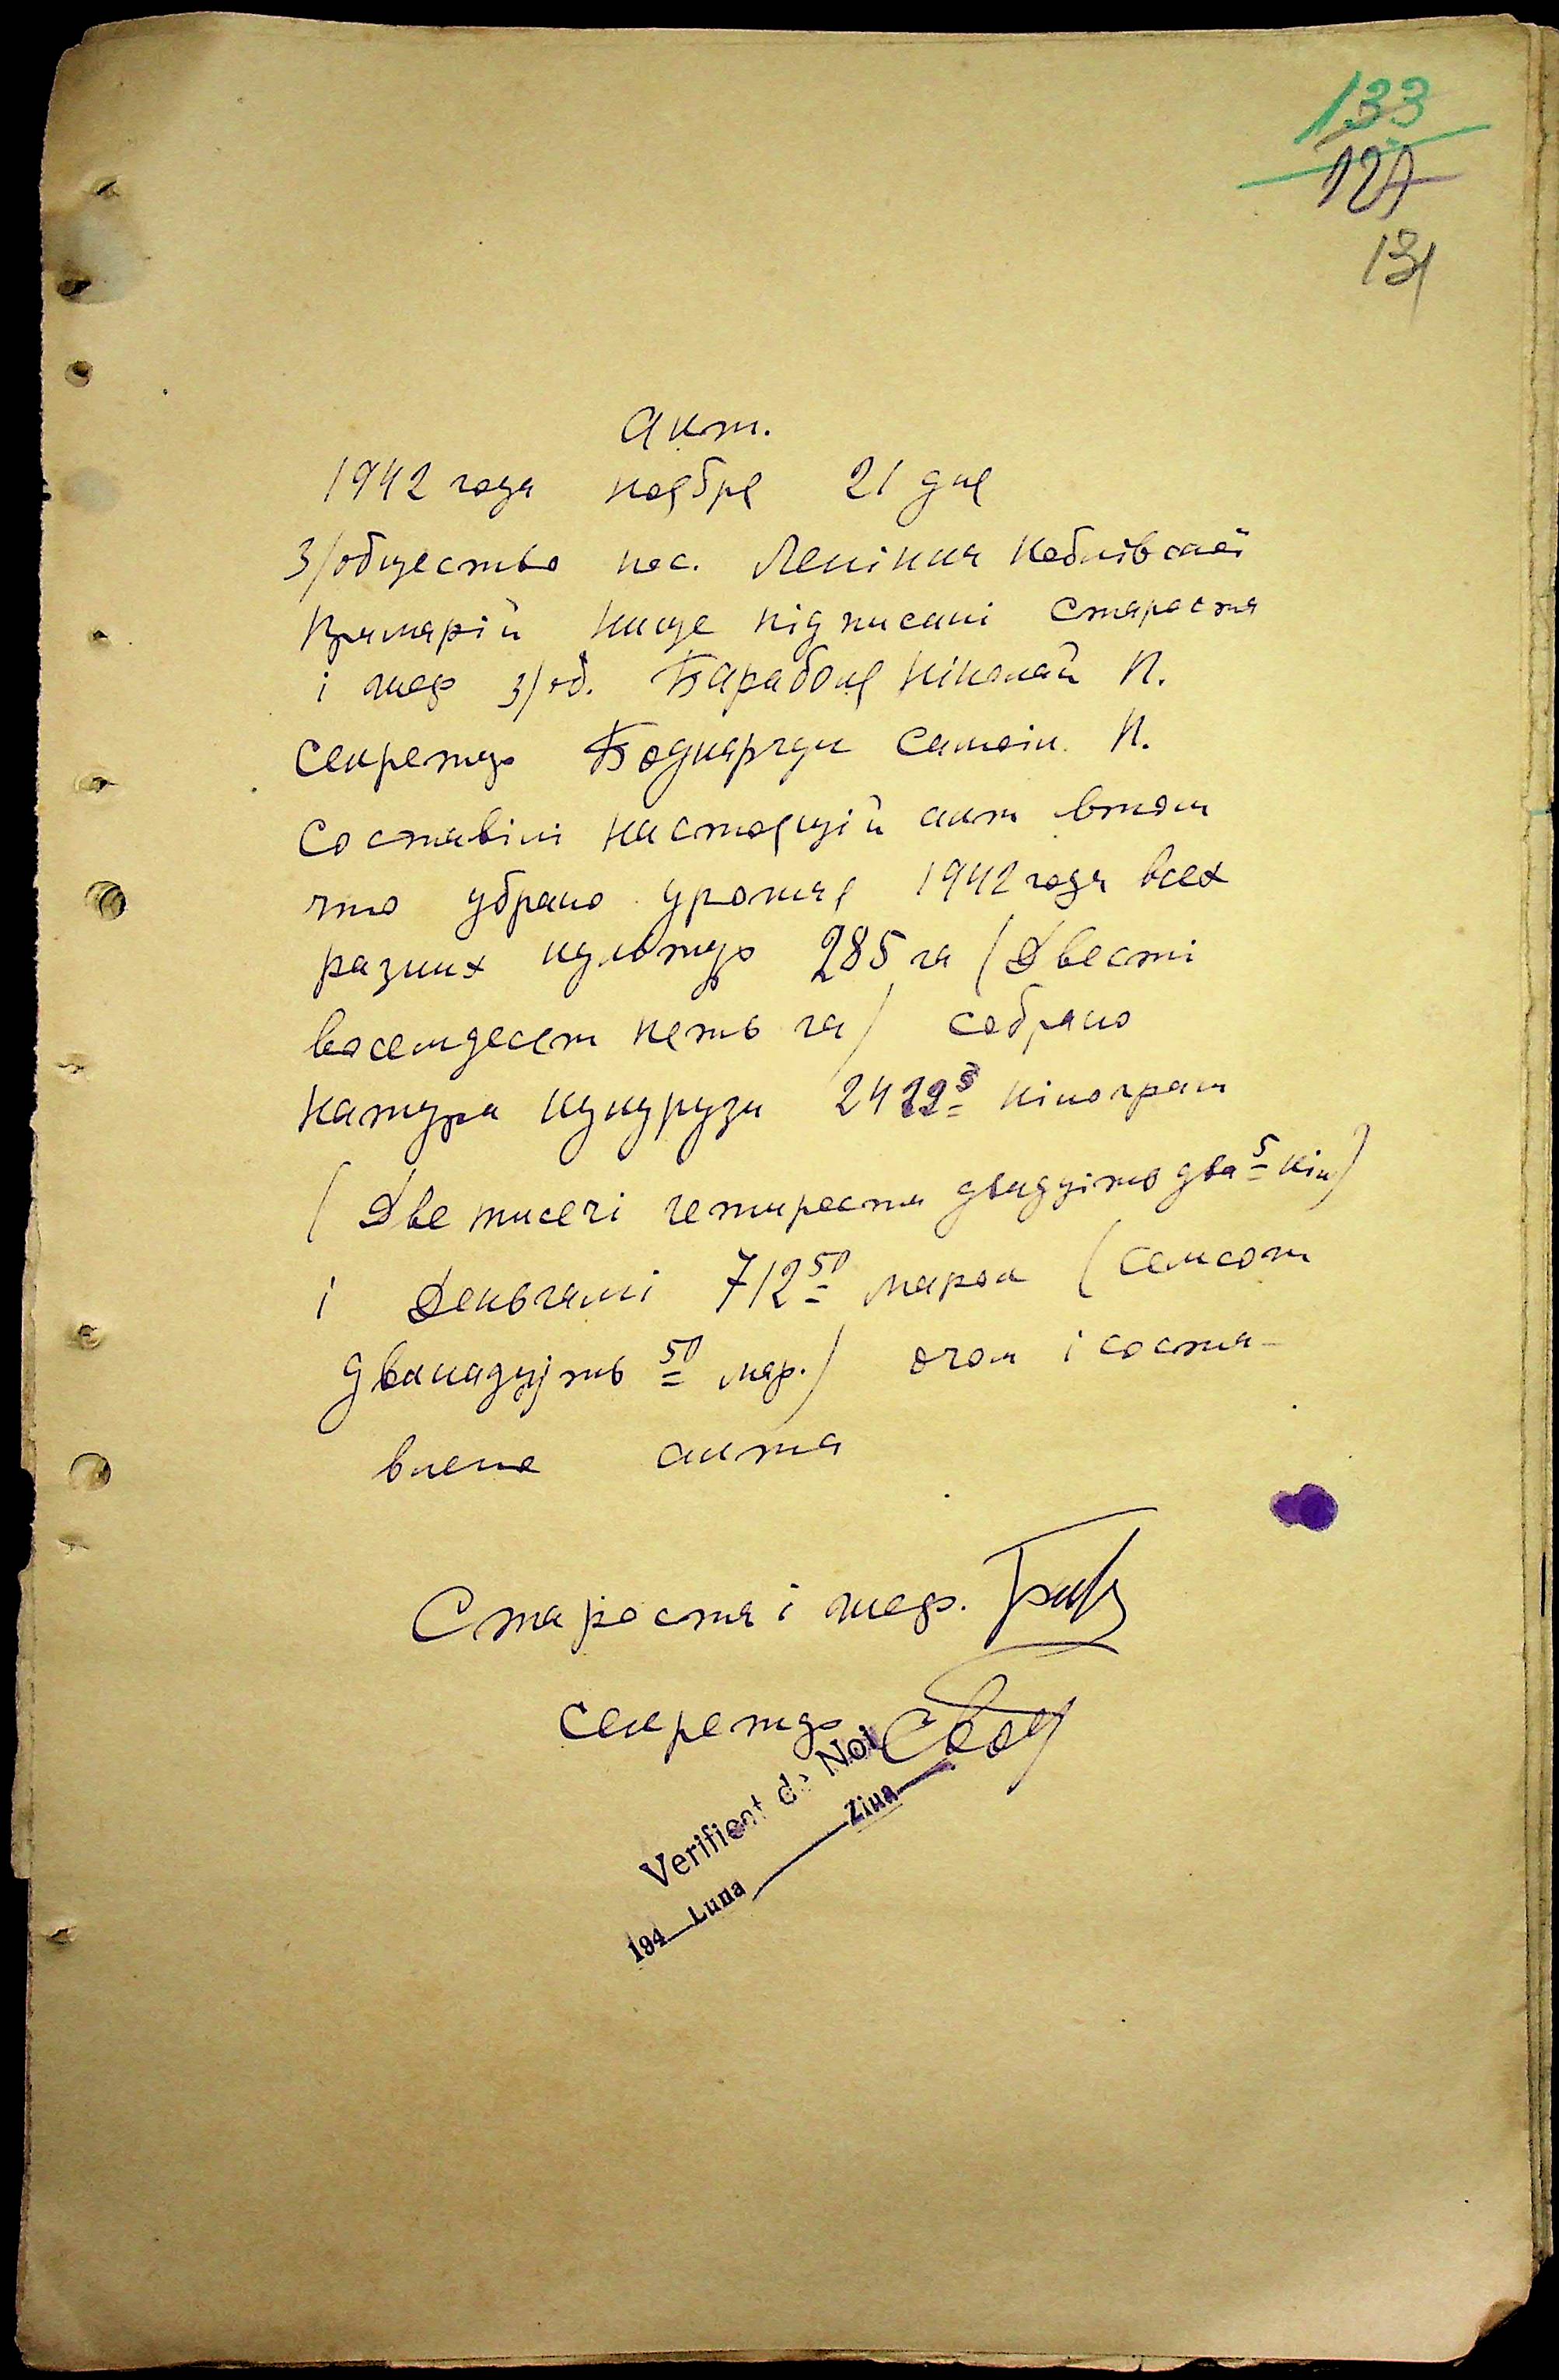 133
127
131
Акт.
1942 года ноебре 21 дне
З/общество пос. Ленінка Коблівскої
Прімарій нище підписані Староста
і шеф з/об. Барабоне Ніколай П.
секретар Боднарчук Самоіл П.
Составілі настоещій акт втом
что убрано урожае 1942 года всех
разних культур 285 га (Двесті
восемдесет петь га) собрано
натура кукурузи 2422 5 кілограм
(Две тисечі четиреста двадціть два 5 кіл)
і Деньгамі 712 50 марок (семсот
дванадціть 50 мар.) очом і соста-
влено акта
Староста і шеф.
секретар
Verificat de Noi
194 Luna Ziua